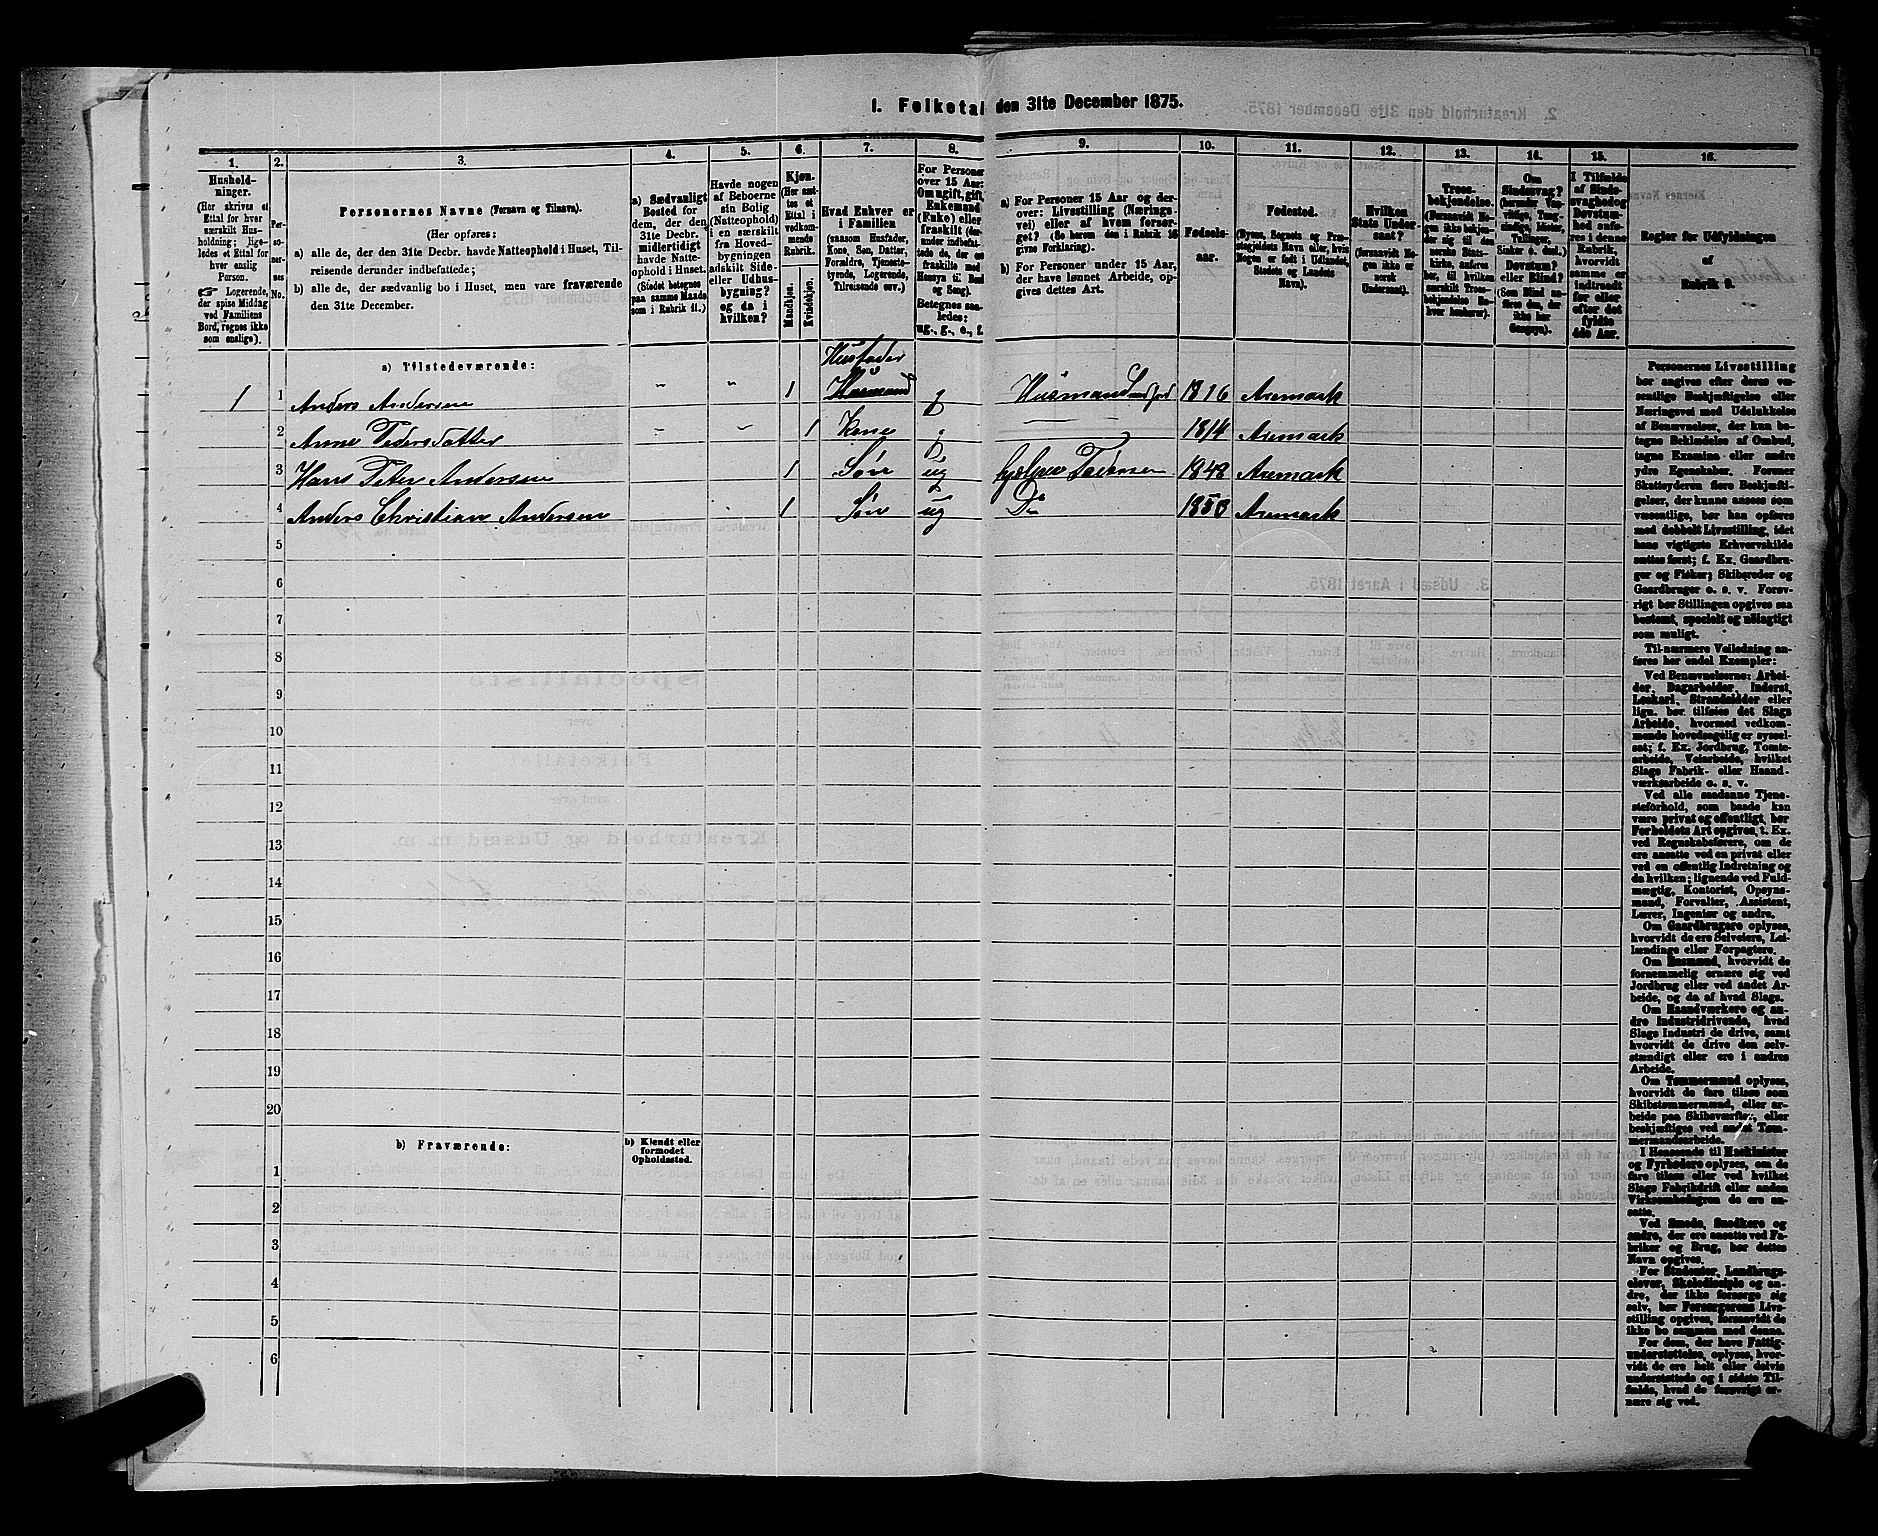 I. Folketal den 31te December 1875.
1. 2. 3. 4. 5. 6. 7. 8. 9. 10. 11. 12. 13. 14. 15. 16.
Husholdninger.
(Her skrives et
Ettal for hver
særskilt Husholdning;
ligeledes et Ettal for
hver enslig
Person.
☞ Logerende,
der spise Middag
ved Familiens
Bord, regnes ikke
som enslige).
Personernes No.
Personernes Navne (Fornavn og Tilnavn).
(Her opføres:
a) alle de, der den 31te Decbr. havde Natteophold i Huset, Tilreisende derunder indbefattede;
b) alle de, der sædvanlig bo i Huset, men vare fraværende
den 31te December.
a) Sædvanligt
Bosted for
dem, der den
31te Decbr.
midlertidigt
havde Natteophold i Huset.
(Stedet betegnes
paa samme Maade
som i Rubrik 11.)
Havde nogen
af Beboerne
sin Bolig
(Natteophold)
i en særskilt
fra Hovedbygningen
adskilt Side- eller Udhusbygning?
og da i
hvilken?
Kjøn.
(Her sættes et
Ettal i
vedkommende
Rubrik.
Mandkjøn.
Kvindekjøn.
Hvad Enhver er
i Familien
(saasom Husfader,
Kone, Søn, Datter,
Forældre, Tjenestetyende, Logerende,
Tilreisende osv.)
For Personer
over 15 Aar:
Om ugift, gift,
Enkemand
(Enke) eller
fraskilt
Betegnes saaledes:
ug., g., e., f.
a) For Personer 15 Aar og derover: Livsstilling (Næringsvei) eller af hvem forsørget? (Se herom den i Rubrik 16
givne Forklaring).
b) For Personer under 15 Aar,
der have lønnet Arbeide, opgives dettes Art.
Fødselsaar.
Fødested.
(Byens, Sognets og Præstegjeldets Navn eller, hvis
Nogen er født i Udlandet,
Stedets og Landets
Navn).
Hvilken
Stats Undersaat?
(forsaavidt Nogen ikke er
norsk
Undersaat).
Troesbekjendelse.
Om
Sindssvag?
Døvstum?
eller Blind?
I Tilfælde
af Sindssvaghed og
Døvstumhed anføres i denne
Rubrik,
hvorvidt
samme er
indtraadt
før eller
efter det
fyldte
4de Aar.
Regler for Udfyldningen
af
Rubrik 9.
a) Tilstedeværende:
Husfader
1 1 Anders Andersen " " 1 Husmand g Husmand 1816 Aremark
2 Anne Pedersdatter " " 1 Kone g 1814 Aremark
3 Hans Peter Andersen 1 Søn ug hjelper Faderen 1848 Aremark
4 Anders Christian Andersen 1 Søn ug Do 1853 Aremark
5
6
7
8
9
10
11
12
13
14
15
16
17
18
19
20
b) Fraværende:
b) Kjendt eller
formodet
Opholdssted.
1
2
3
4
5
6
Personernes Livsstilling
bør angives efter deres væsentlige Beskjæftigelse eller
Næringsvei med Udelukkelse
af Benævnelser, der kun betegne Beklædelse af Ombud,
tagne Examina eller andre
ydre Egenskaber. Forener
Skatteyderen flere Beskjæftigelser, der kunne ansees som
væsentlige, bør han opføres
med dobbelt Livsstilling, idet
hans vigtigste Erhvervskilde
sættes først; f. Ex. Gaardbruger og Fisker; Skibsreder og
Gaardbruger o. s. v. Forøvrigt bør Stillingen opgives saa
bestemt, specielt og nøiagtigt
som muligt.
Til nærmere Veiledning anføres her endel Exempler:
Ved Benævnelserne: Arbeider, Dagarbeider, Inderst,
Løskarl, Strandsidder eller
lign. bør tilføies det Slags
Arbeide, hvormed vedkommende hovedsagelig er sysselsat; f. Ex. Jordbrug, Tomtearbeide, Veiarbeide, hvilket
Slags Fabrik- eller Haandværksarbeide o. s. v.
Ved alle saadanne Tjenesteforhold, som baade kan
være privat og offentligt, bør
Forholdets Art opgives, t. Ex.
ved Regnskabsførere, om de
ere ansatte ved en privat eller
ved en offentlig Indretning og
da hvilken; lignende ved Fuldmægtig, Kontorist, Opsynsmand, Forvalter, Assistent,
Lærer, Ingeniør og andre.
Om Gaardbrugere oplyses,
hvorvidt de ere Selveiere, Leilændinge eller Forpagtere.
Om Husmænd, hvorvidt de
fornemmelig ernære sig ved
Jordbrug eller ved andet Arbeide, og da af hvad Slags.
Om Haandværkere og andre Industridrivende, hvad
Slags Industri de drive, samt
hvorvidt de drive den selvstændigt eller ere i andres
Arbeide.
Om Tømmermænd oplyses,
hvorvidt de fare tilsøs som
Skibstømmermænd, eller arbeide paa Skibsværfter, eller
beskjæftiges ved andet Tømmermandsarbeide.
I Henseende til Maskinister
og Fyrbødere oplyses, om de
fare tilsøs eller ved hvilket
Slags Fabrikdrift eller anden
Virksomhed de ere ansatte.
Ved Smede, Snedkere og
andre, der ere ansatte ved Fabriker og Brug, bør dettes
Navn opgives.
For Studenter, Landbrugselever, Skoledisciple og andre, der ikke forsørge sig
selv, bør Forsørgerens Livsstilling opgives, forsaavidt de
ikke bo sammen med denne.
For dem, der have Fattigunderstøttelse, oplyses, hvorvidt de ere helt eller delvis
understøttede og i sidste Tilfælde, hvad de forøvrigt ernære sig ved.